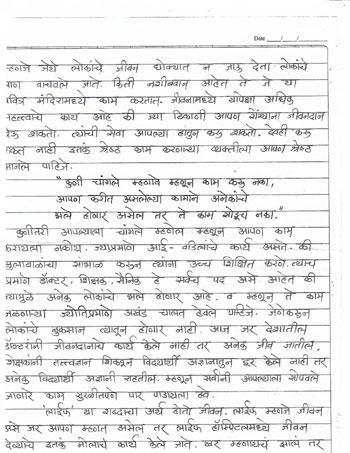 Date
म्हणजे जेथे लोकांचे जीवन धोक्यात न जाऊ देता लोकांचे
प्राण वाचवले जाते. किती नशीबवान आहेत ते जे या
पवित्र मंदिरामध्ये काम करतात. जीवनामध्ये यापेक्षा अधिक
महत्त्वाचे काय आहे की ज्या ठिकाणी आपण रोग्यांना जीवनदान
देऊ शकतो. त्यांची सेवा आपल्या हातून करू शकतो. देवही करू
शकत नाही इतकं श्रेष्ठ काम करणाऱ्या व्यक्तीला आपण श्रेष्ठ
मानले पाहिजे.
"कुणी चांगले म्हणावे म्हणून काम करू नका,
आपण करीत असलेल्या कामाने अनेकांचे
भले होणार असेल तर ते काम सोडूच नका."
कुणीतरी आपल्याला चांगले म्हणेल म्हणून आपण काम
करायला नकोय. ज्याप्रमाणे आई - वडिलांचे कार्य असते. की
मुलाबाळांचा सांभाळ करून त्यांना उच्च शिक्षित करणे. त्याच
प्रमाणे डॉक्टर, शिक्षक, सैनिक हे सर्वच पद असे आहेत की
ज्यामुळे अनेक लोकांचे भले होणार आहे. व म्हणून ते काम
जळणाऱ्या ज्योतिप्रमाणे अखंड चालत ठेवले पाहिजे. जेणेकरून
लोकांचे नुकसान त्यातून होणार नाही. आज जर देशातील
डॉक्टरांनी जीवनदानाचे कार्य केले नाही तर अनेक जीव जातील,
शिक्षकांनी तत्त्वज्ञान शिकवून विद्यार्थी अज्ञानातून दूर केले नाही तर
अनेक विद्यार्थी अज्ञानी राहतील. म्हणून सर्वांनी आपल्याला सोपवले
जाणारे काम सुरळीतपणे पार पाडायला हवे.
'लाईफ' या शब्दाचा अर्थ होतो जीवन. लाईफ म्हणजे जीवन
असे जर आपण म्हणत असेल तर लाईफ हॉस्पिटलमध्ये जीवन
देव्याचे इतकं मोलाचे कार्य केले जाते. खरं म्हणायचं झालं तर